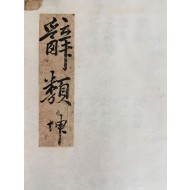 辭類 坤